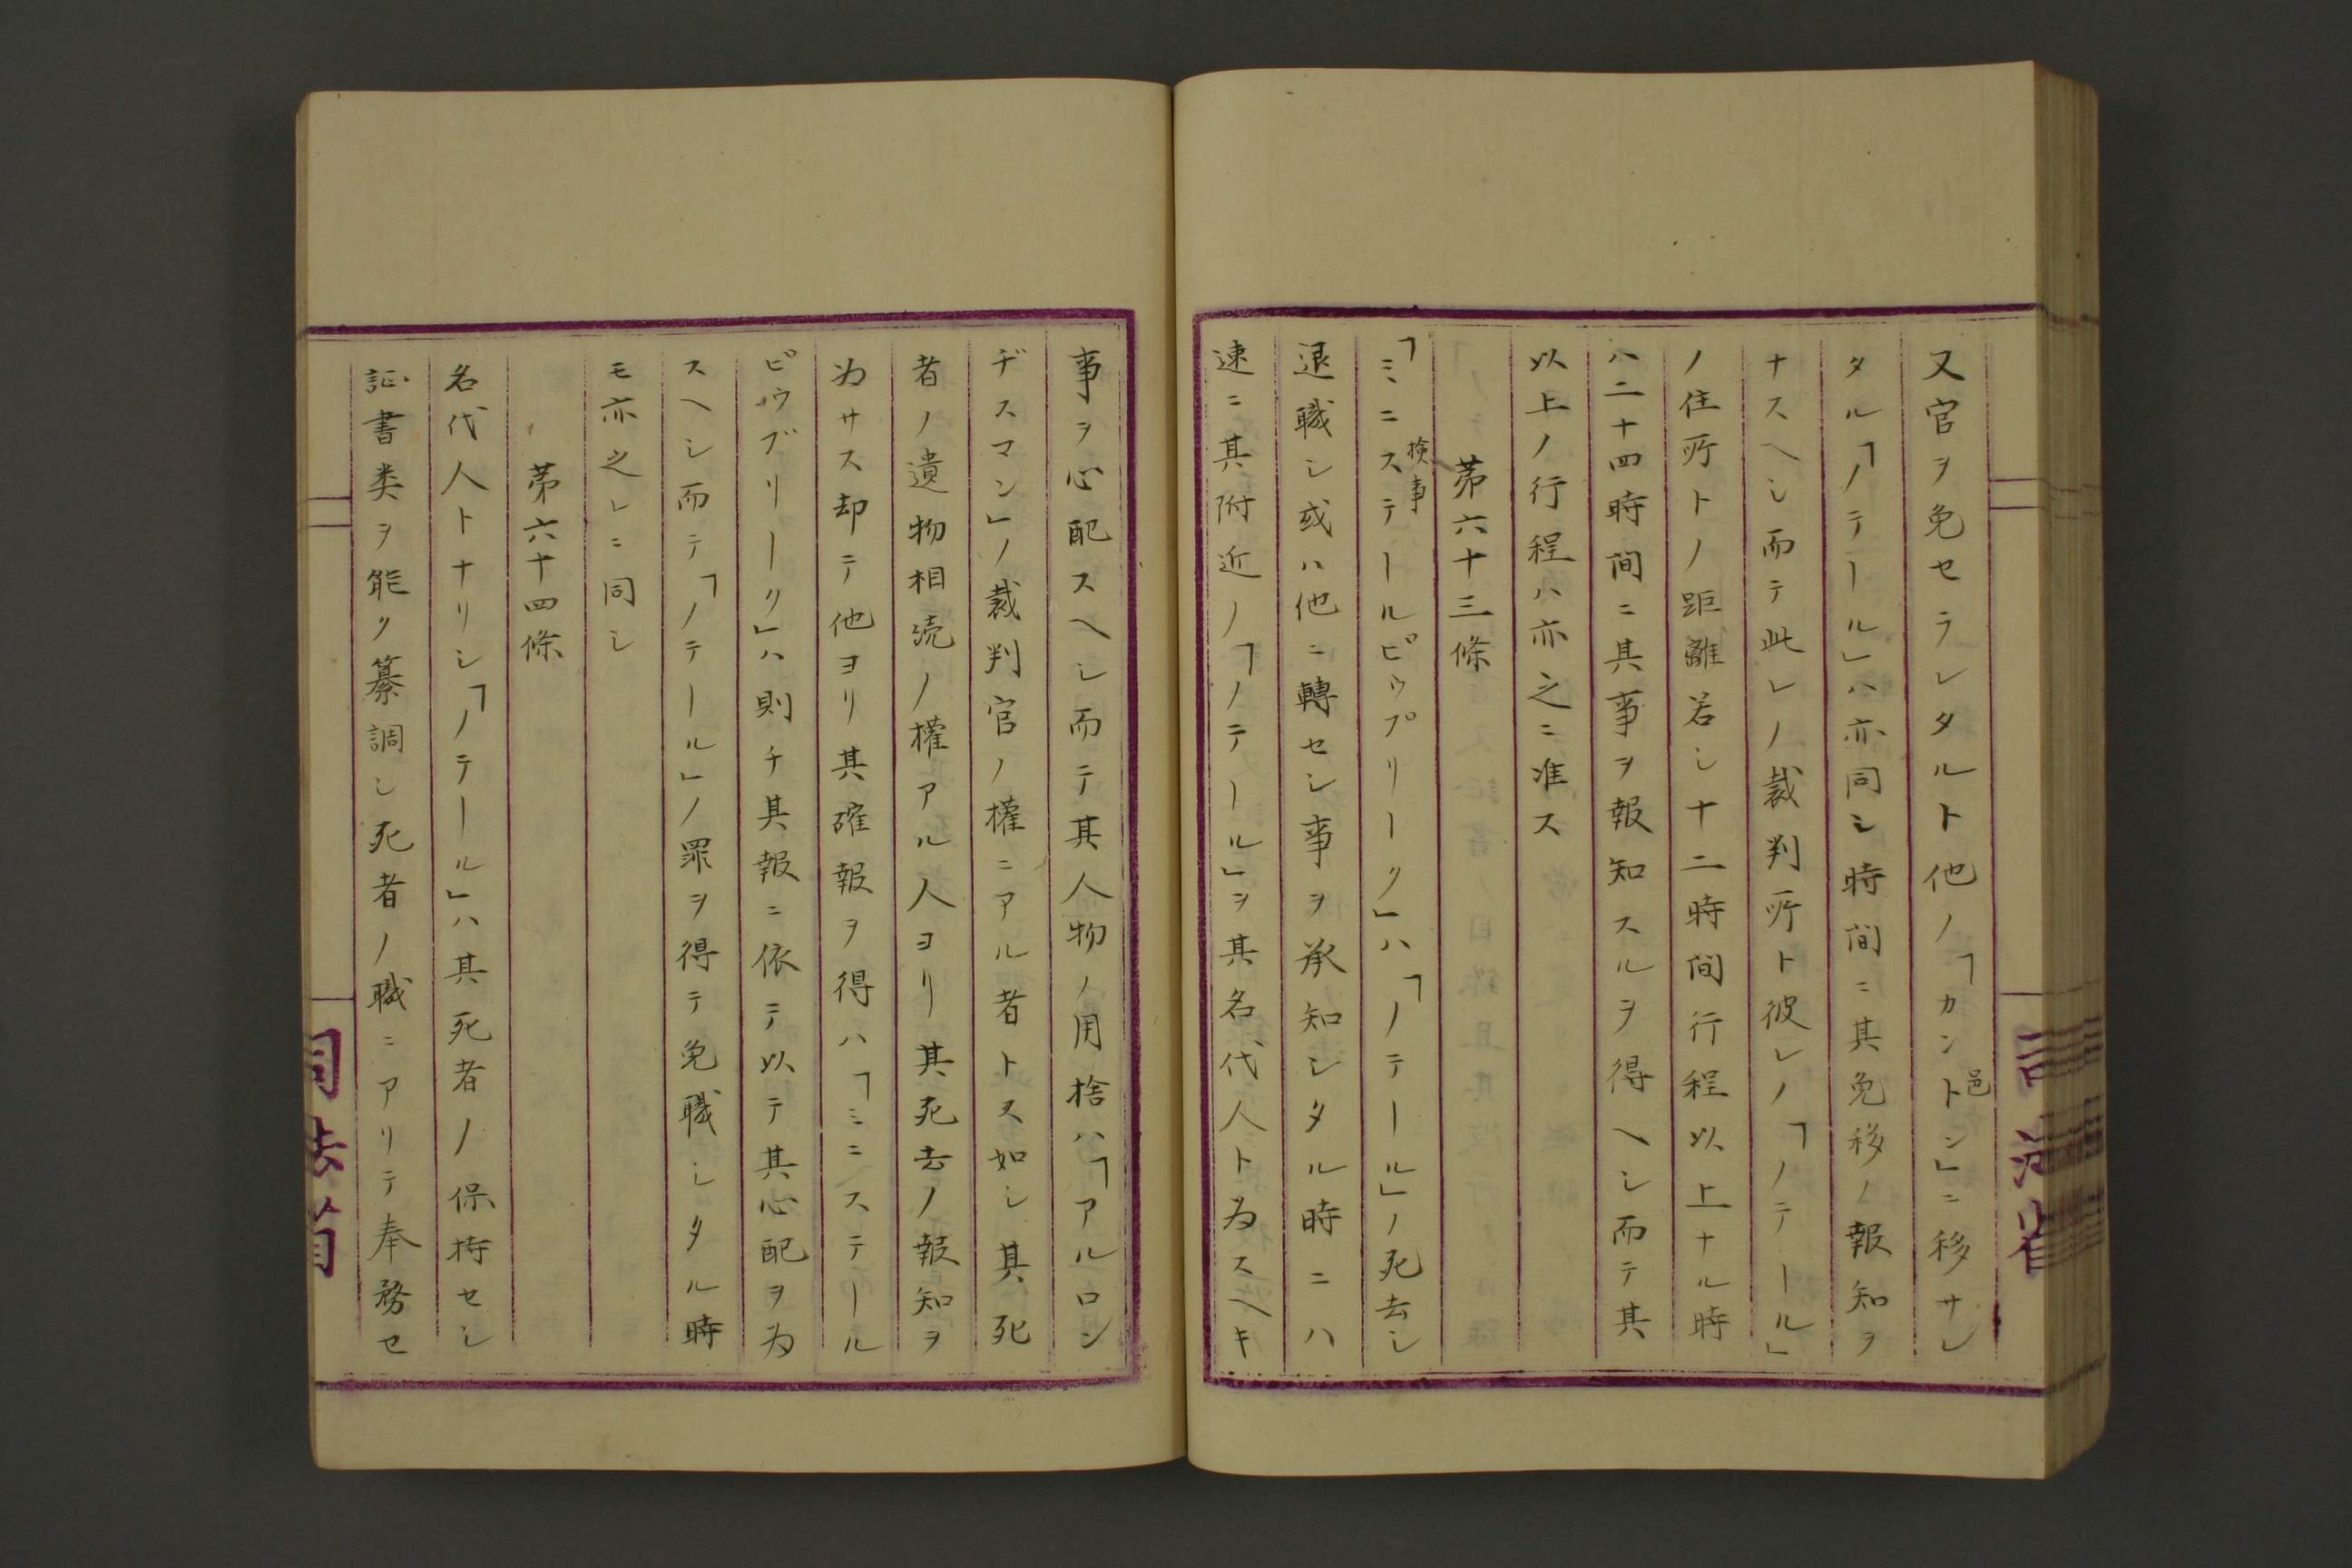 又官ヲ免セラレタルト他ノ「カントン」ニ移サレ
邑
タル「ノテール」ハ亦同シ時間ニ其免移ノ報知ヲ
ナスヘシ而テ此レノ裁判所ト彼レノ「ノテール」
ノ住所トノ距離若シ十二時間行程以上ナル時
ハ二十四時間ニ其事ヲ報知スルヲ得ヘシ而テ其
以上ノ行程ハ亦之ニ准ス
第六十三條
検事
「ミニステールピウプリーク」ハ「ノテール」ノ死去シ
退職シ或ハ他ニ轉セシ事ヲ承知シタル時ニハ
速ニ其附近ノ「ノテール」ヲ其名代人ト為スヘキ
事ヲ心配スヘシ而テ其人物ノ用捨ハ「アルロン
ヂスマン」ノ裁判官ノ權ニアル者トス如シ其死
者ノ遺物相続ノ權アル人ヨリ其死去ノ報知ヲ
為サス却テ他ヨリ其確報ヲ得ハ「ミニステール
ピウブリーク」ハ則チ其報ニ依テ以テ其心配ヲ為
スヘシ而テ「ノテール」ノ罪ヲ得テ免職シタル時
モ亦之レニ同シ
第六十四條
名代人トナリシ「ノテール」ハ其死者ノ保持セシ
証書类ヲ能ク纂調シ死者ノ職ニアリテ奉務セ
司法省